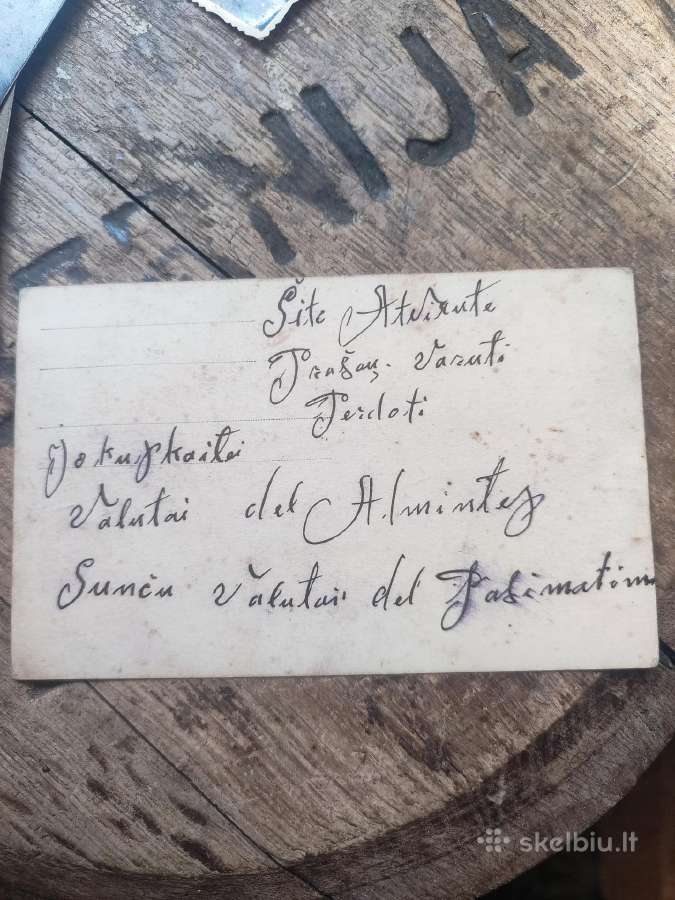 ENIJA
Šite Atvirute
Prašau. Varuti
Perdoti
Jokupkaitei
Valutai del Almintes
Sunču Valutai del Pasimatim
skelbiu.lt